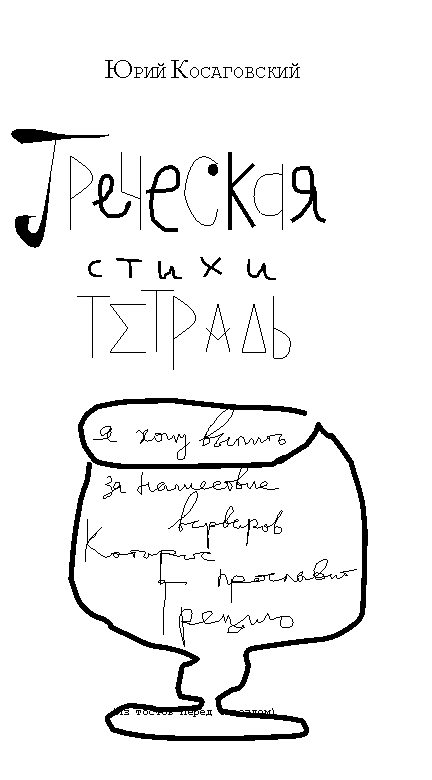 Юрий Косаговский
Греческая
стихи
ТЕТРАДЬ
я хочу выпить
за нашествие
варваров
Которые
прославит
Грецию
тостов перед